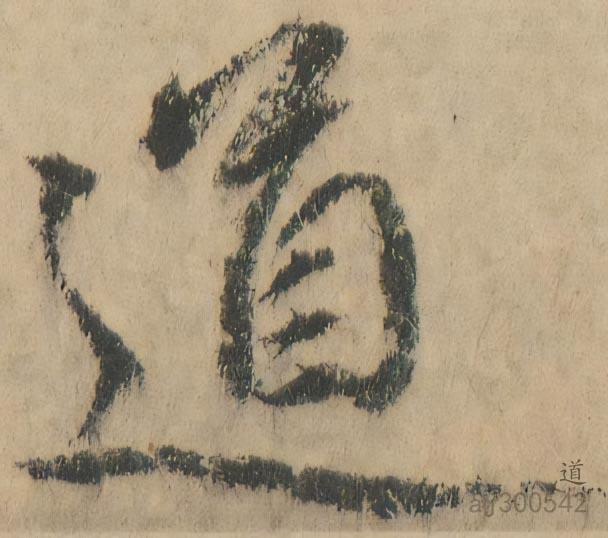 道
道
ay300542